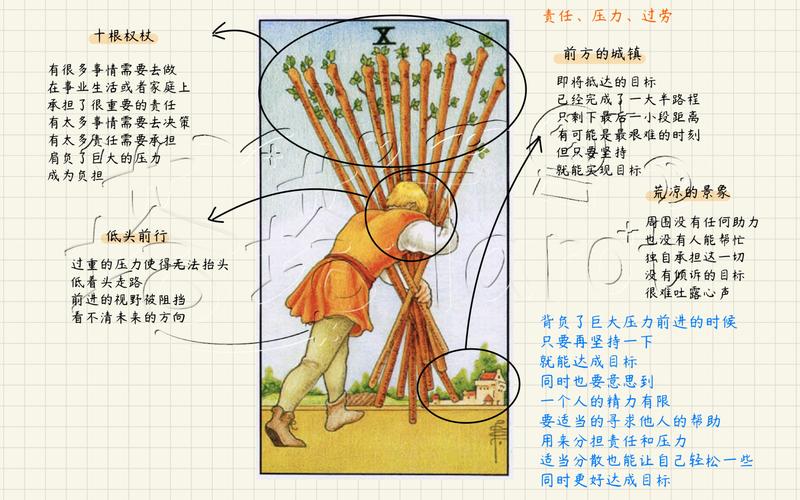 责任、压力、过劳
十根权杖
有很多事情需要去做
在事业生活或者家庭上
承担了很重要的责任
有太多事情需要去决策
有太多责任需要承担
肩负了巨大的压力
成为负担
X
前方的城镇
即将抵达的目标
已经完成了一大半路程
只剩下最后一小段距离
有可能是最艰难的时刻
但只要坚持
就能实现目标
低头前行
过重的压力使得无法抬头
低着头走路
前进的视野被阻挡
看不清未来的方向
荒凉的景象
周围没有任何助力
也没有人能帮忙
独自承担这一切
没有倾诉的目标
很难吐露心声
背负了巨大压力前进的时候
只要再坚持一下
就能达成目标
同时也要意思到
一个人的精力有限
要适当的寻求他人的帮助
用来分担责任和压力
适当分散也能让自己轻松一些
同时更好达成目标